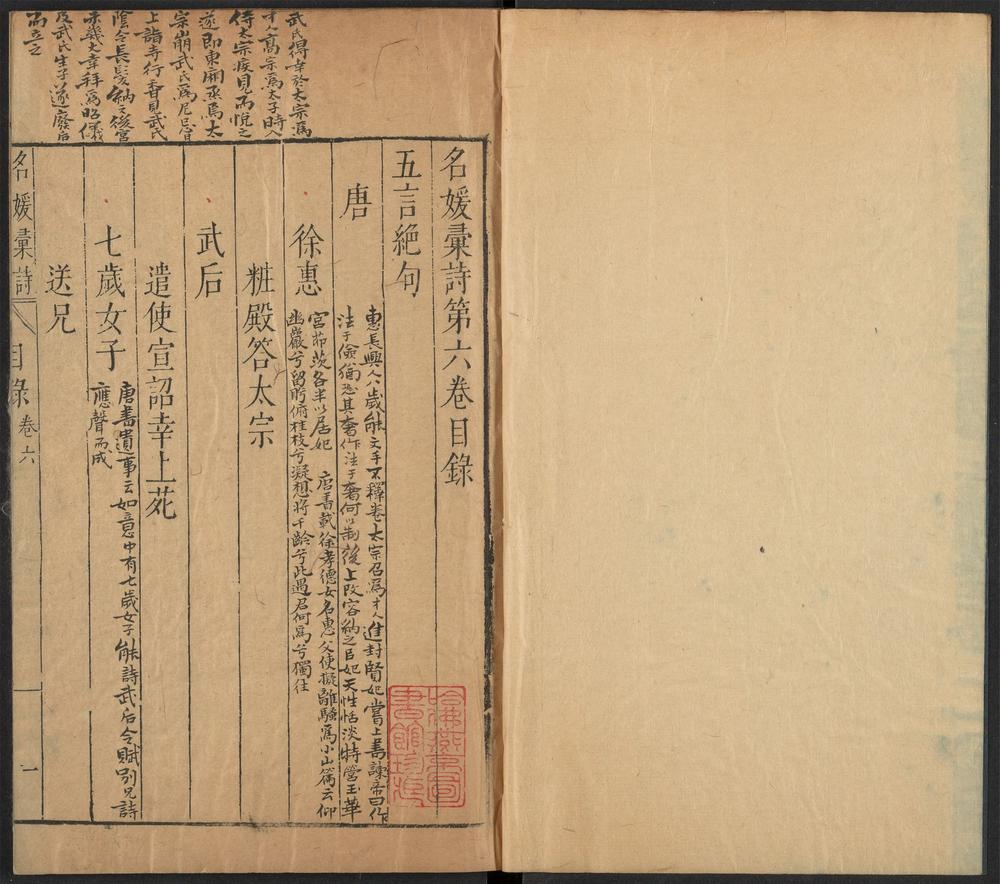 名媛彙詩第六卷目錄
五言絕句
唐
徐惠
惠長興人八歲能文手不釋卷太宗召爲才人進封賢妃嘗上書諫帝曰作
法于儉猶恐其奢作法于奢何以制後上改容納之曰妃天性恬淡特營玉華
宮茆茨各半以居妃 唐書載徐孝德女名惠父使擬離騷爲小山篇云仰
幽巖兮留盻俯桂枝兮凝想將千齡兮此過君何爲兮獨往
粧殿答太宗
武后
遣使宣詔幸上苑
七歲女子
唐書遺事云如意中有七歲女子能詩武后令賦別兄詩
應聲而成
送兄
名媛彙詩 目錄 卷六 一
武氏得幸於太宗爲
才人高宗爲太子時入
侍太宗疾見而悅之
遂即東廂烝焉太
宗崩武氏爲尼忌日
上詣寺行香見武氏
陰令長髮納之後宮
未幾大幸拜爲昭儀
及武氏生子遂廢后
而立之
哈佛燕京圖
書館珍藏